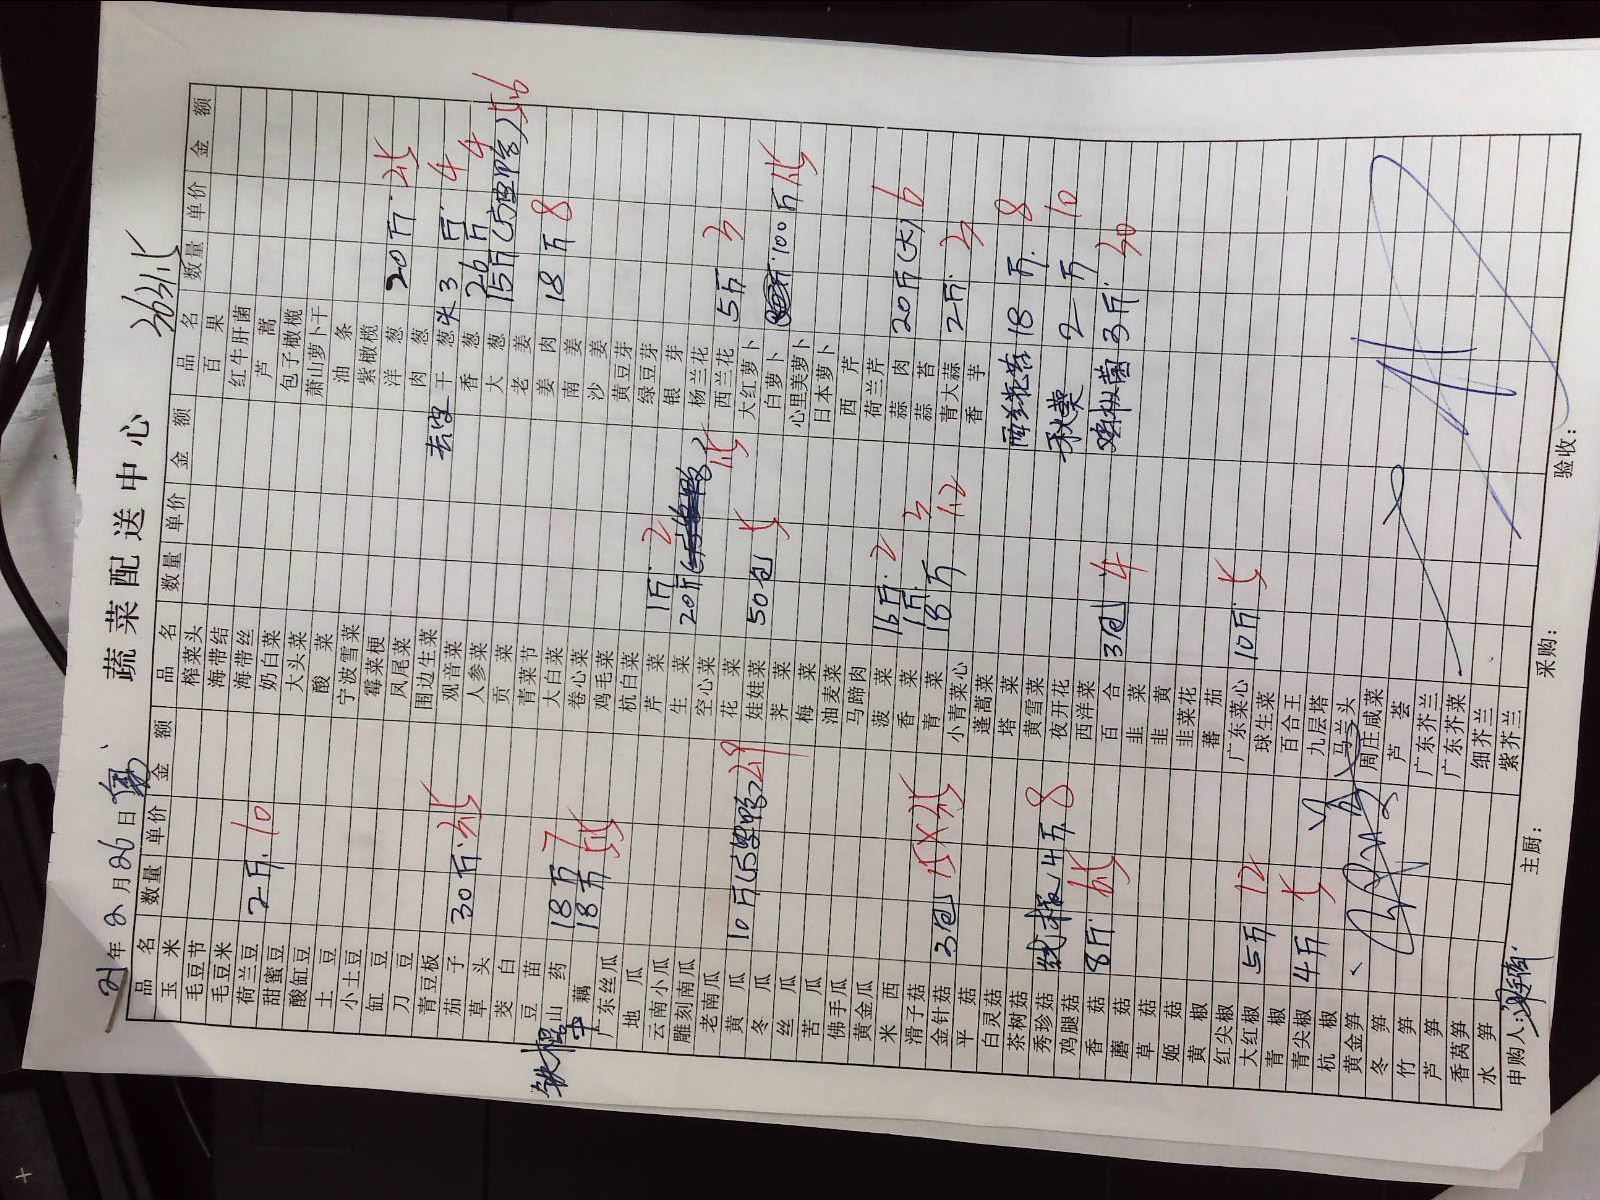 蔬菜配送中心
21年2月26日
品名 数量 单价 金额 品名 数量 单价 金额 品名 数量 单价 金额
玉米 榨菜头 百果
毛豆节 海带结 红牛肝菌
毛豆米 海带丝 芦蒿
荷兰豆 2斤 10 奶白菜 包子橄榄
甜蜜豆 大头菜 萧山萝卜干
酸缸豆 酸菜 油条
土豆 宁波雪菜 紫橄榄
小土豆 霉菜梗 洋葱 20斤
缸豆 凤尾菜 肉葱
刀豆 围边生菜 去皮干葱头 3斤 4
青豆板 观音菜 香葱 26斤 4
茄子 30斤 人参菜 大葱 15斤
草头 贡菜 老姜
茭白 青菜节 姜肉 18斤 8
豆苗 大白菜 南姜
铁棍山药 18斤 卷心菜 沙姜
藕 18斤 鸡毛菜 黄豆芽
广东丝瓜 杭白菜 绿豆芽
地瓜 芹菜 1斤 2 银芽
云南小瓜 生菜 20斤 杨兰花
雕刻南瓜 空心菜 西兰花 5斤 3
老南瓜 花菜 大红萝卜
黄瓜 10斤 娃娃菜 50包 5 白萝卜 100斤
冬瓜 荠菜 心里美萝卜
丝瓜 梅菜 日本萝卜
苦瓜 油麦菜 西芹
佛手瓜 马蹄肉 荷兰芹
黄金瓜 菠菜 16斤 2 蒜肉 20斤(大) 6
米西 香菜 1斤 3 蒜苔
滑子菇 青菜 18斤 1.2 青大蒜 2斤 3
金针菇 3包 小青菜心 香芋
平菇 蓬蒿菜
白灵菇 塔菜 18斤 8
茶树菇 黄雪菜
秀珍菇 线椒 4斤 8 夜开花 秋葵 2斤 10
鸡腿菇 西洋菜
香菇 8斤 百合 3包 4 鸡枞菌 3斤 30
蘑菇 韭菜
草菇 韭黄
姬菇 韭菜花
黄椒 蕃茄 10斤 5
红尖椒 广东菜心
大红椒 5斤 12 球生菜
青椒 百合王
青尖椒 4斤 5 九层塔
杭椒 马兰头
黄金笋 周庄咸菜
冬笋 芦荟
竹笋 广东芥兰
芦笋 广东芥菜
香莴笋 细芥兰
水笋 紫芥兰
申购人: 主厨: 采购: 验收: